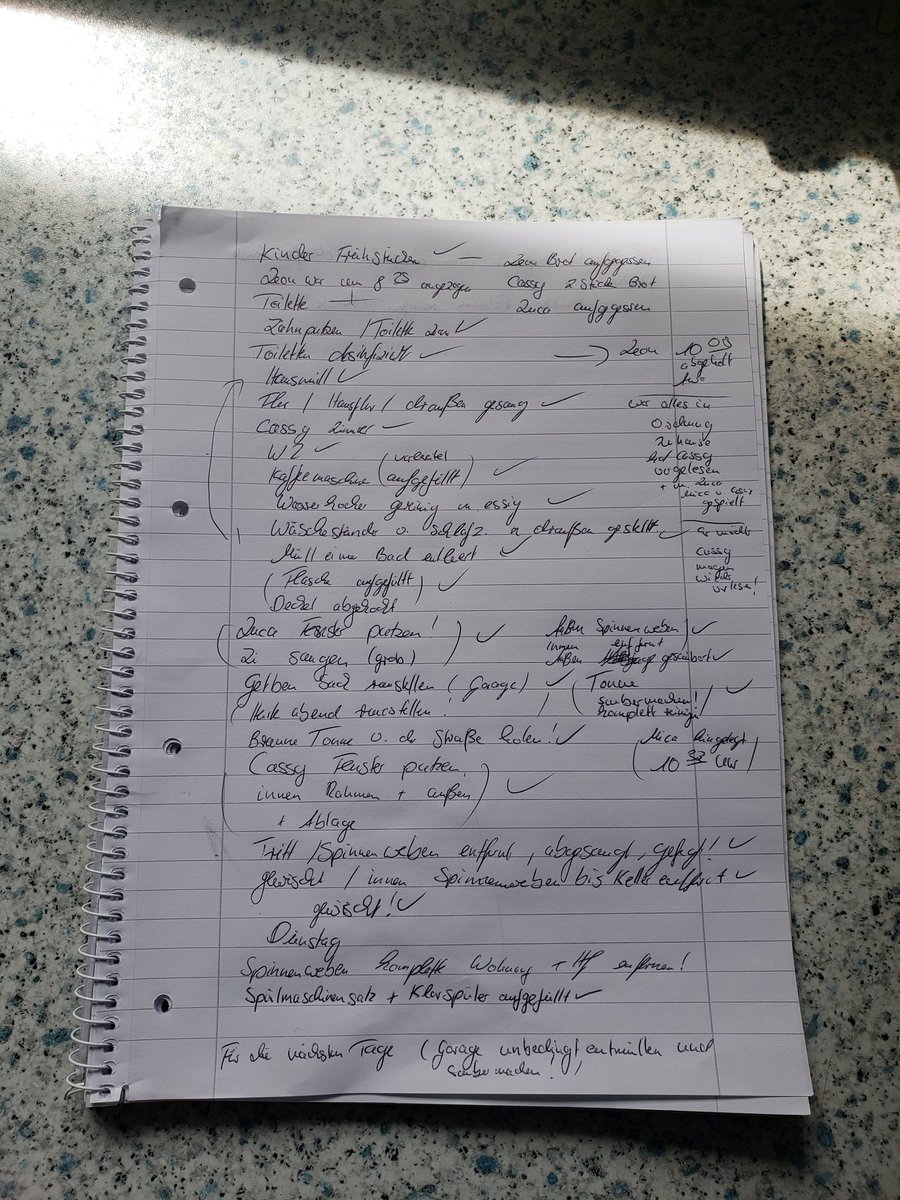 Kinder Frühstücken ✓ — Leon Brot aufgegessen
Leon war um 8 25 angezogen Cassy 2 Stücke Brot
Toilette Luca aufgegessen
Zähneputzen / Toilette ✓
Toiletten desinfiziert ✓ Leon 10 00
abgeholt
Hausmüll ✓
Flur / Hausflur / draußen gesaugt ✓ war alles in
Cassy Zimmer ✓ Ordnung
WZ ✓ zuhause
Kaffemaschine (vorbereitet hat Cassy
aufgefüllt) ✓ vorgelesen
+ m. Luca
Mica u. Cassy
Wasserkocher gereinig m essig ✓ gespielt
Wäscheständer u. Schlafz. n draußen gestellt ✓ er möchte
Müll eimer Bad entleert ✓ Cassy
morgen
(Flasche aufgefüllt) ✓ wieder
vorlesen!
Deckel abgekocht
(Luca Fenster putzen! ✓ Außen Spinnenweben) ✓
innen entfernt
Zi saugen (grob)) Außen gesäubert ✓
Gelben Sack rausstellen (Garage) ✓ (Tonne
saubermachen! ✓
(Heute abend rausstellen! ) komplett reinigen)
Braune Tonne v. der Straße holen! ✓ (Mica hingelegt
Cassy Fenster putzen, 10 32 Uhr)
innen Rahmen + außen ✓
+ Ablage
Tritt / Spinnenweben entfernt, abgesaugt, gefegt! ✓
gewischt / innen Spinnenweben bis Keller entfernt ✓
gewischt! ✓
Dienstag
Spinnenweben komplette Wohnung + Hf entfernen!
Spülmaschinensalz + Klarspüler aufgefüllt ✓
Für die nächsten Tage (Garage unbedingt entmüllen und
sauber machen!)